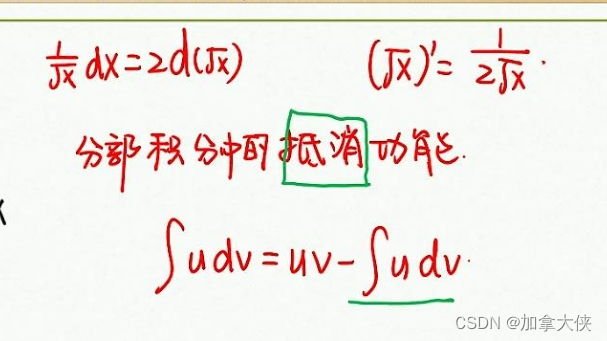 1/√x dx=2d(√x) (√x)'=1/2√x.
分部积分中的抵消功能.
∫udv=uv-∫udv.
CSDN @加拿大侠